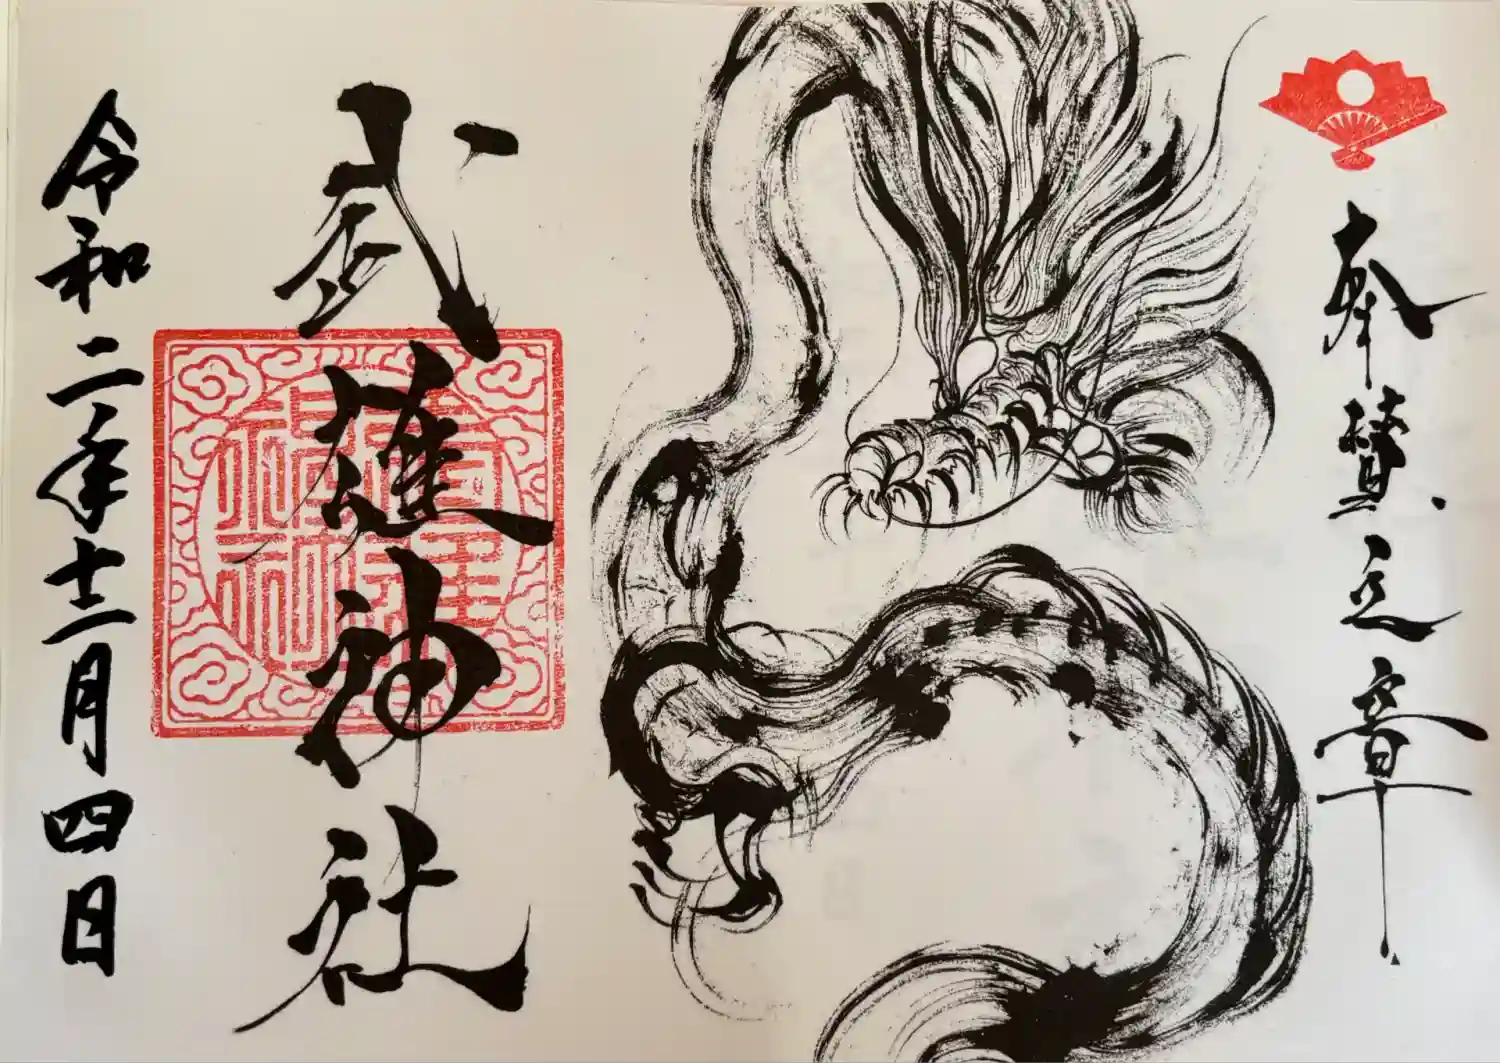 奉賛之章
武雄神社
令和二年十二月四日